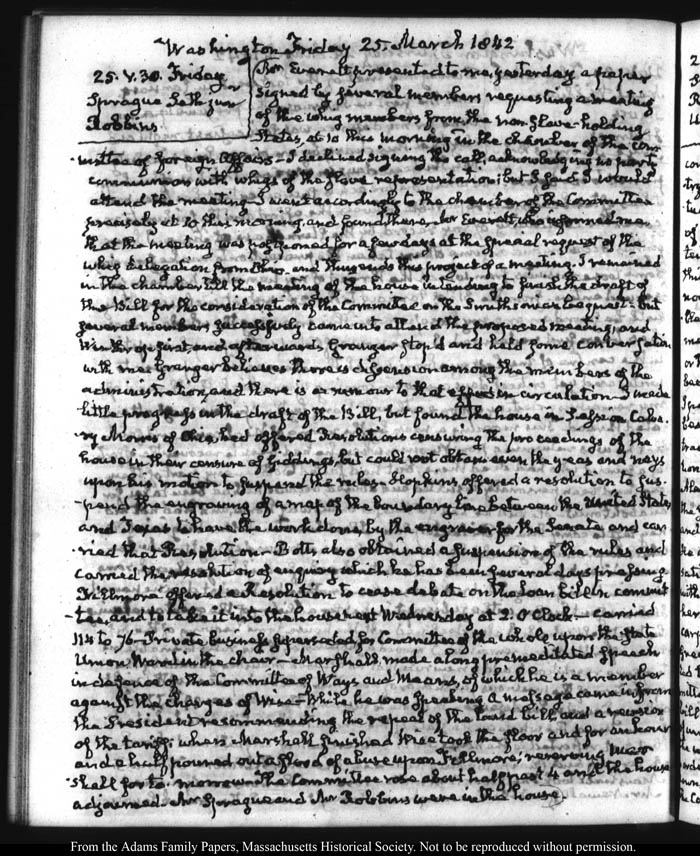 Washington Friday 25. March 1842
25. V.30. Friday
Sprague Seth jun.r
Robbins
Everett presented to me, yesterday a paper
signed by several members requesting a meeting
of the whig members from the non-slave-holding
States, at 10 this morning in the chamber of the Com-
mittee of foreign Affairs – I declined signing the call, acknowledging no party
communion with whigs of the slave representation; but I said I would
attend the meeting. I went accordingly to the chamber of the Committee
precisely at 10 this morning, and found there, Mr Everett, who informed me
that the meeting was postponed for a few days at the special request of the
whig delegation from Ohio. and thus ends this project of a meeting. I remained
in the chamber till the meeting of the house intending to finish the draft of
the Bill for the consideration of the Committee on the Smithsonian bequest – but
several members successively came in to attend the proposed meeting, and
Winthrop first, and afterwards Granger stop'd and held some conversation
with me. Granger believes there is dissension among the members of the
administration, and there is a rumour to that effect in circulation. I made
little progress in the draft of the Bill, but found the house in Session. Calva-
ry Morris of Ohio, had offered Resolutions censuring the proceedings of the
house in their censure of Giddings, but could not obtain even the yeas and nays
upon his motion to suspend the rules. Hopkins offered a resolution to sus-
pend the engraving of a map of the boundary line between the United States
and Texas to have the work done, by the engraver for the Senate and car-
ried that Resolution – Botts also obtained a suspension of the rules and
carried the resolution of enquiry which he has been several days pressing
Fillmore offered a Resolution to cease debate on the loan bill in commit-
tee, and to take it into the house next Wednesday at 2. O'Clock – carried
114 to 76 – Private business superseded for Committee of the whole upon the State
Union Ward in the chair – Marshall made a long premeditated speech
in defence of the Committee of Ways and Means, of which he is a member
against the charges of Wise – While he was speaking a message came in from
the President recommending the repeal of the land bill and a revision
of the tariff: when Marshall finished Wise took the floor and for an hour
and a half poured out a flood of abuse upon Fillmore; reserving Mar-
shall for to-morrow. The Committee rose about half past 4 and the house
adjourned. Mr Sprague and Mr Robbins were in the house.
From the Adams Family Papers, Massachusetts Historical Society. Not to be reproduced without permission.